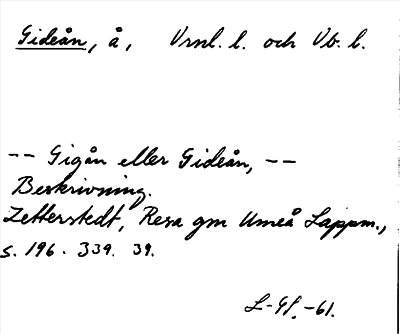 Gideån, å, Vrnl. l. och Vb. l.
-- Gigån eller Gideån, --
Beskrivning.
Zetterstedt, Resa gm Umeå Lappm.,
s. 196. 339. 39.
L-Gf.-61.